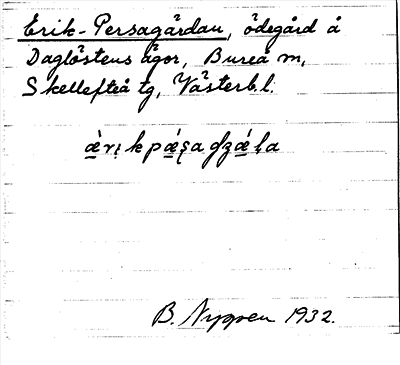 Erik-Persagärdan, ödegård å
Daglöstens ägor, Bureå m,
Skellefteå tg, Västerb.l.
B. Nygren 1932.